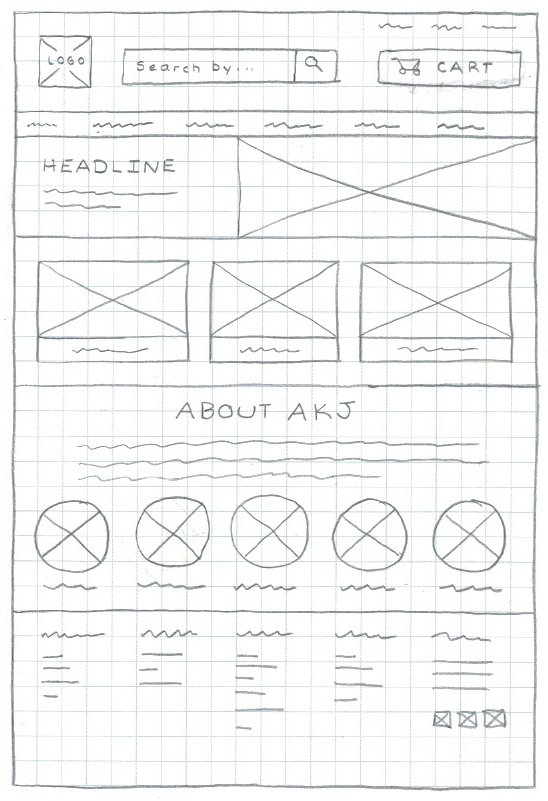 LOGO
Search by...
CART
HEADLINE
ABOUT AKJ